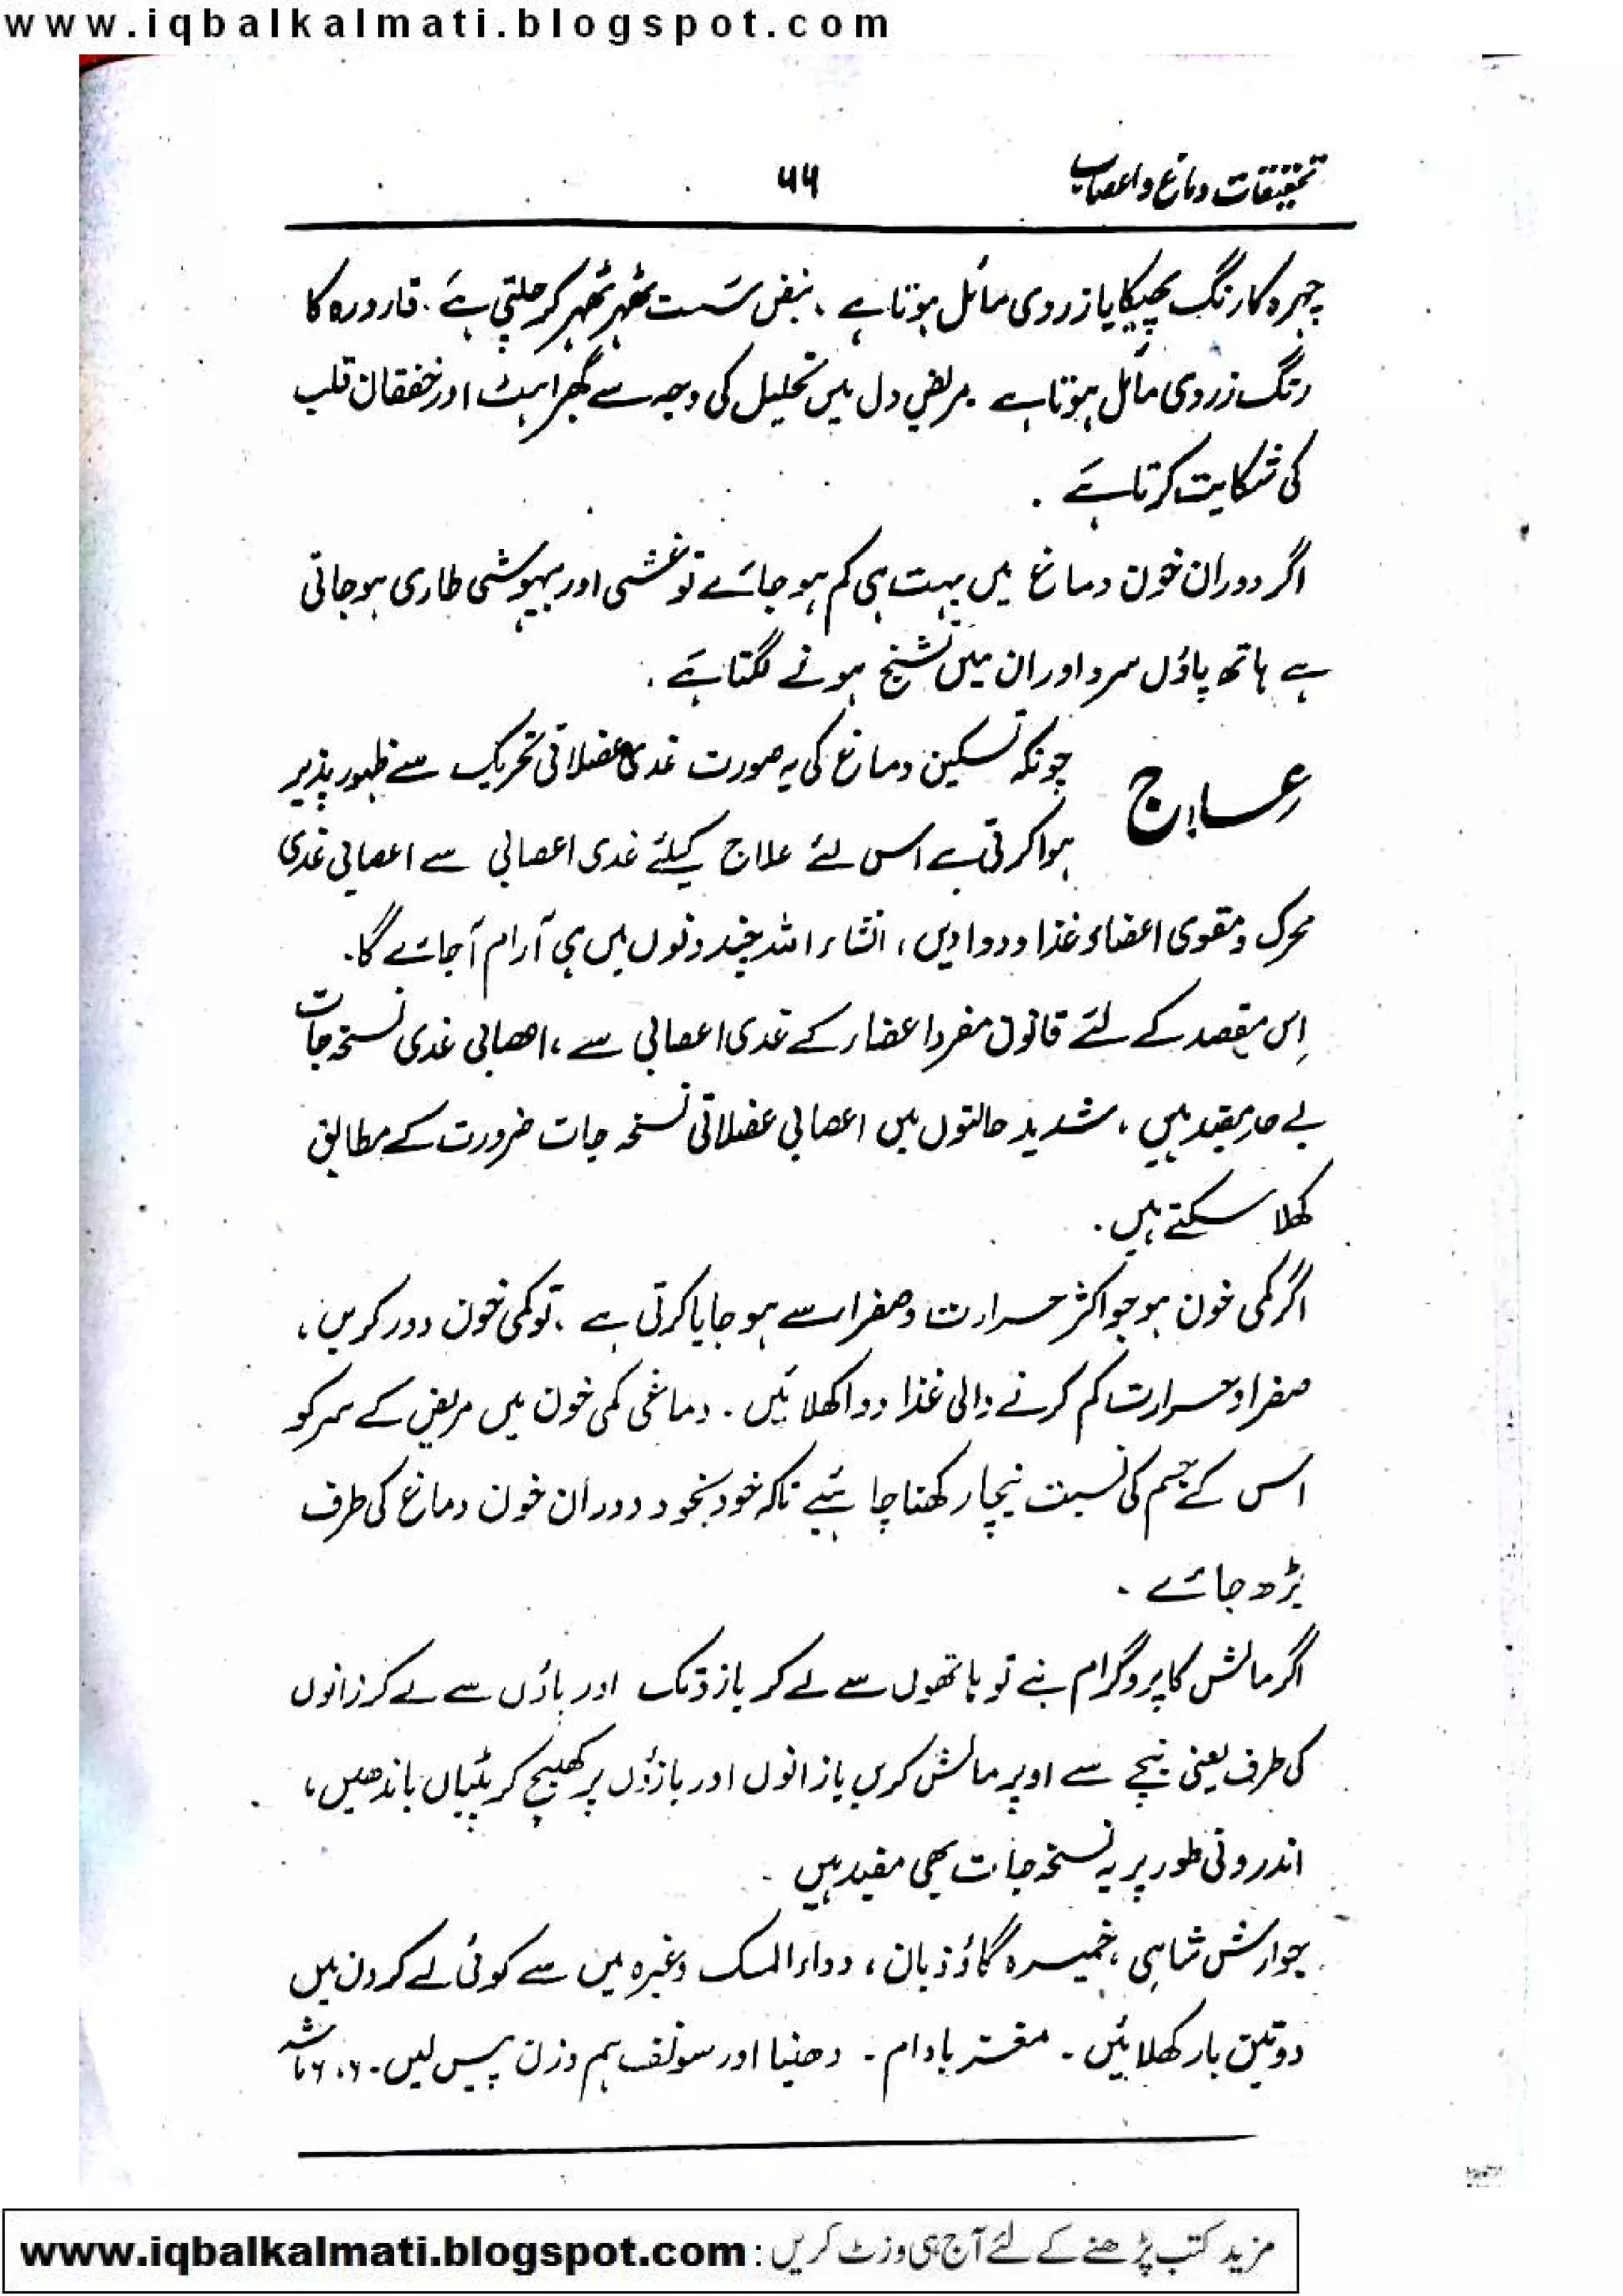 www.iqbalkalmati.blogspot.com
تحقیقات دماغ و اعصاب ۵۵
چہرہ کا رنگ پھیکا یا زردی مائل ہوتا ہے ، نبض سست ٹھہر ٹھہر کر چلتی ہے ۔ قارورہ کا
رنگ زردی مائل ہوتا ہے ۔ مریض دل میں تحلیل کی وجہ سے گھبراہٹ اور خفقان قلب
کی شکایت کرتا ہے ۔
اگر دوران خون دماغ میں بہت ہی کم ہو جائے تو غشی اور بیہوشی طاری ہو جاتی
ہے ہاتھ پاؤں سرد اور ان میں تشنج ہونے لگتا ہے ۔
علاج چونکہ تسکین دماغ کی یہ صورت غدی عضلاتی تحریک سے ظہور پذیر
ہوا کرتی ہے اس لئے علاج کیلئے غدی اعصابی سے اعصابی غدی
محرک و مقوی اعضاء غذا و دوا دیں ، انشاء اللہ چند دنوں میں ہی آرام آجائے گا ۔
اِس مقصد کے لئے قانون مفرد اعضاء کے غدی اعصابی سے ، اعصابی غدی نسخہ جات
بے حد مفید ہیں ، شدید حالتوں میں اعصابی عضلاتی نسخہ جات ضرورت کے مطابق
کھلا سکتے ہیں ۔
اگر کمی خون ہو جو اکثر حرارت و صفراء سے ہو جایا کرتی ہے ، تو کمی خون دور کریں ،
صفرا و حرارت کم کرنے والی غذا دوا کھلائیں ۔ دماغی کمی خون میں مریض کے سر کو
اس کے جسم کی نسبت نیچا رکھنا چاہئیے تاکہ خود بخود دوران خون دماغ کی طرف
بڑھ جائے ۔
اگر مالش کا پروگرام بنے تو ہاتھوں سے لے کر بازو تک اور پاؤں سے لے کر زانوں
کی طرف یعنی نیچے سے اوپر مالش کریں یا زانوں اور بازوں پر کھینچ کر پٹیاں باندھیں ،
اندرونی طور پر یہ نسخہ جات بھی مفید ہیں ۔
جوارش شاہی ، خمیرہ گاؤزبان ، دواء المسک وغیرہ میں سے کوئی لے کر دن میں
دو تین بار کھلائیں ۔ مغز بادام ۔ دھنیا اور سونف ہم وزن پیس لیں ۔ ۶، ۶ ماشہ
مزید کتب پڑھنے کے لئے آج ہی وزٹ کریں : www.iqbalkalmati.blogspot.com